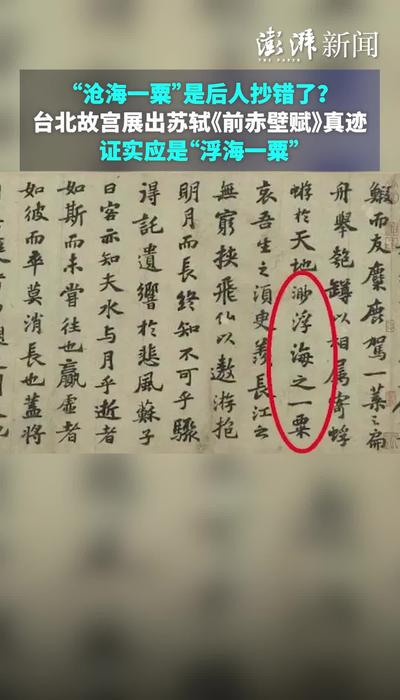 澎湃新闻
THE PAPER
“沧海一粟”是后人抄错了？
台北故宫展出苏轼《前赤壁赋》真迹
证实应是“浮海一粟”
鰕而友麋鹿駕一葉之扁
舟舉匏罇以相属寄蜉
蝣於天地渺浮海之一粟
哀吾生之須臾羨長江之
無窮挾飛仙以遨游抱
明月而長終知不可乎驟
得託遺響於悲風蘇子
曰客亦知夫水與月乎逝者
如斯而未嘗往也贏虛者
如彼而卒莫消長也蓋將